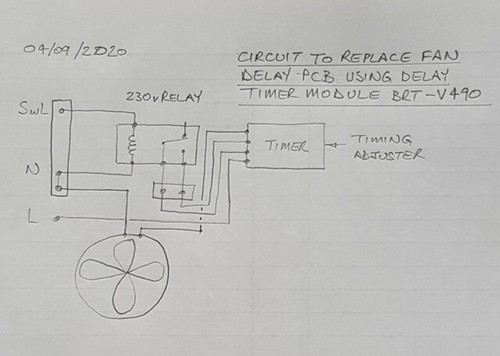 04/09/2020
CIRCUIT TO REPLACE FAN
DELAY PCB USING DELAY
TIMER MODULE BRT-V490
230V RELAY
SWL
N
L
TIMER
TIMING
ADJUSTER